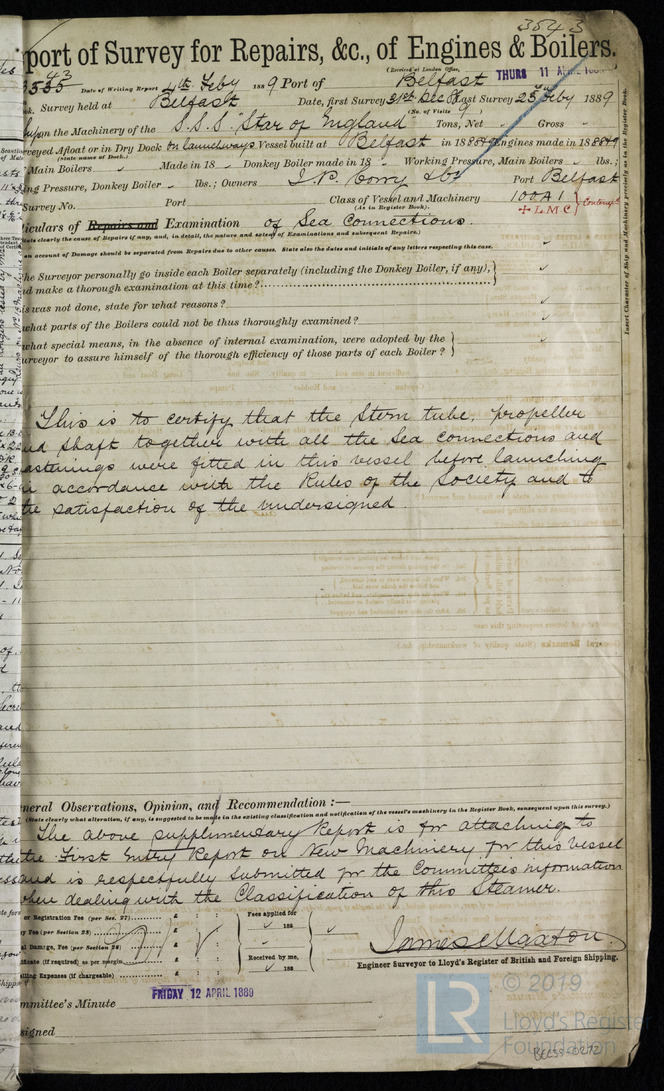 3543
port of Survey for Repairs, &c., of Engines & Boilers.
(Received at London Office,
THURS 11 APRIL 1889
43
Date of Writing Report 4th Feby 1889 Port of Belfast
Survey held at Belfast Date, first Survey 21st Dec 88 Last Survey 25 Feby 1889
(No. of Visits 9)
on the Machinery of the S.S.S. "Star of England" Tons, Net Gross
veyed Afloat or in Dry Dock on launchways Vessel built at Belfast in 1889 Engines made in 1889
(State name of Dock.)
Main Boilers Made in 18 Donkey Boiler made in 18 Working Pressure, Main Boilers lbs.;
ing Pressure, Donkey Boiler lbs.; Owners J. P. Corry & Co Port Belfast
Survey No. Port Class of Vessel and Machinery 100A1
(As in Register Book). + L.M.C } Contempd
iculars of Repairs and Examination of Sea Connections.
tate clearly the cause of Repairs if any, and, in detail, the nature and extent of Examinations and subsequent Repairs.)
an account of Damage should be separated from Repairs due to other causes. State also the dates and initials of any letters respecting this case.
he Surveyor personally go inside each Boiler separately (including the Donkey Boiler, if any),
d make a thorough examination at this time?
is was not done, state for what reasons?
what parts of the Boilers could not be thus thoroughly examined?
what special means, in the absence of internal examination, were adopted by the
urveyor to assure himself of the thorough efficiency of those parts of each Boiler?
Insert Character of Ship and Machinery precisely as in the Register Book.
This is to certify that the Stern tube, propeller
and shaft together with all the Sea connections and
fastenings were fitted in this vessel before launching
in accordance with the Rules of the Society and to
the satisfaction of the undersigned.
neral Observations, Opinion, and Recommendation :—
(State clearly what alteration, if any, is suggested to be made in the existing classification and notification of the vessel's machinery in the Register Book, consequent upon this survey.)
The above supplimentary Report is for attaching to
the First Entry Report on New Machinery for this vessel
and is respectfully submitted for the Committee's information
when dealing with the Classification of this Steamer.
or Registration Fee (per Sec. 27) £ : : Fees applied for
y Fee (per Section 28) £ : : 188
al Damage, Fee (per Section 28) £ : :
ificate (if required) as per margin £ : : Received by me,
lling Expenses (if chargeable) £ : : 188
James Maxton
Engineer Surveyor to Lloyd's Register of British and Foreign Shipping.
mmittee's Minute FRIDAY 12 APRIL 1889
signed
LR © 2019
Lloyd's Register
Foundation